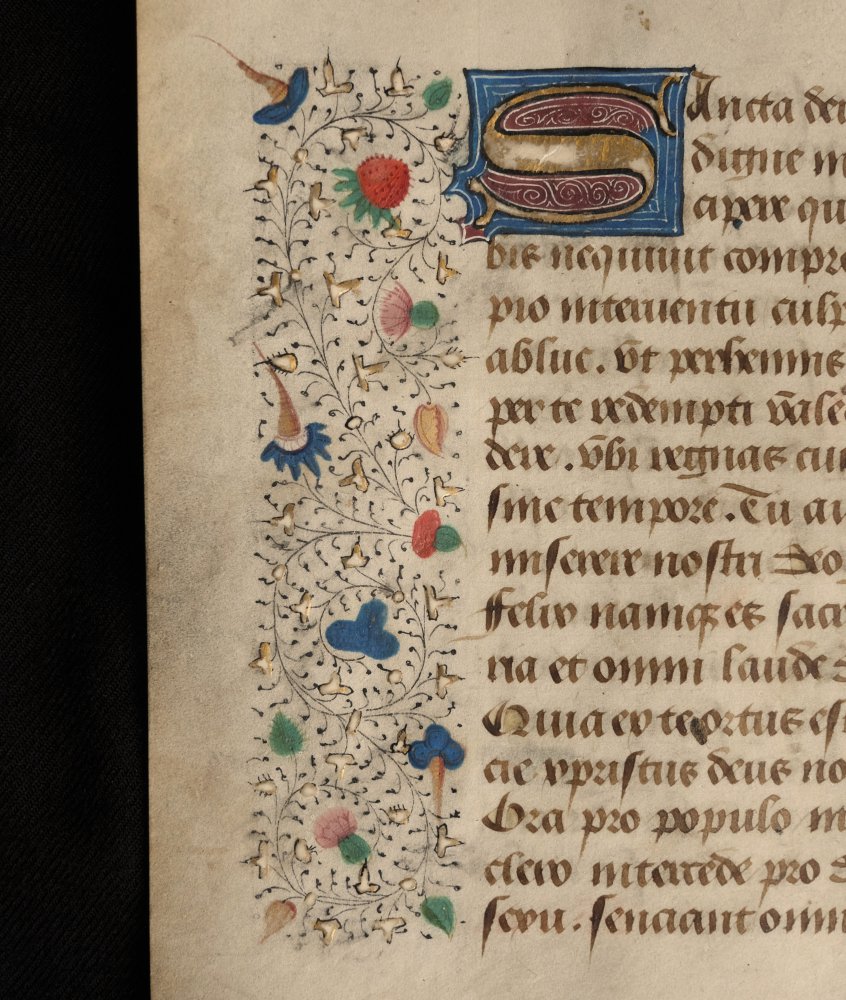 Sancta dei
digne m
cipere qu
bis nequiuit compre
pio interuentu culp
ablue. vt perhennis
per te redempti vale
dere. vbi regnas cu
sine tempore. Tu au
miserere nostri Deo
ffelix namqꝫ es sacr
ria et omni laude d
Quia ex te ortus est
cie xpristus deus no
Ora pro populo in
clero intercede pro d
sexu. senciant omn